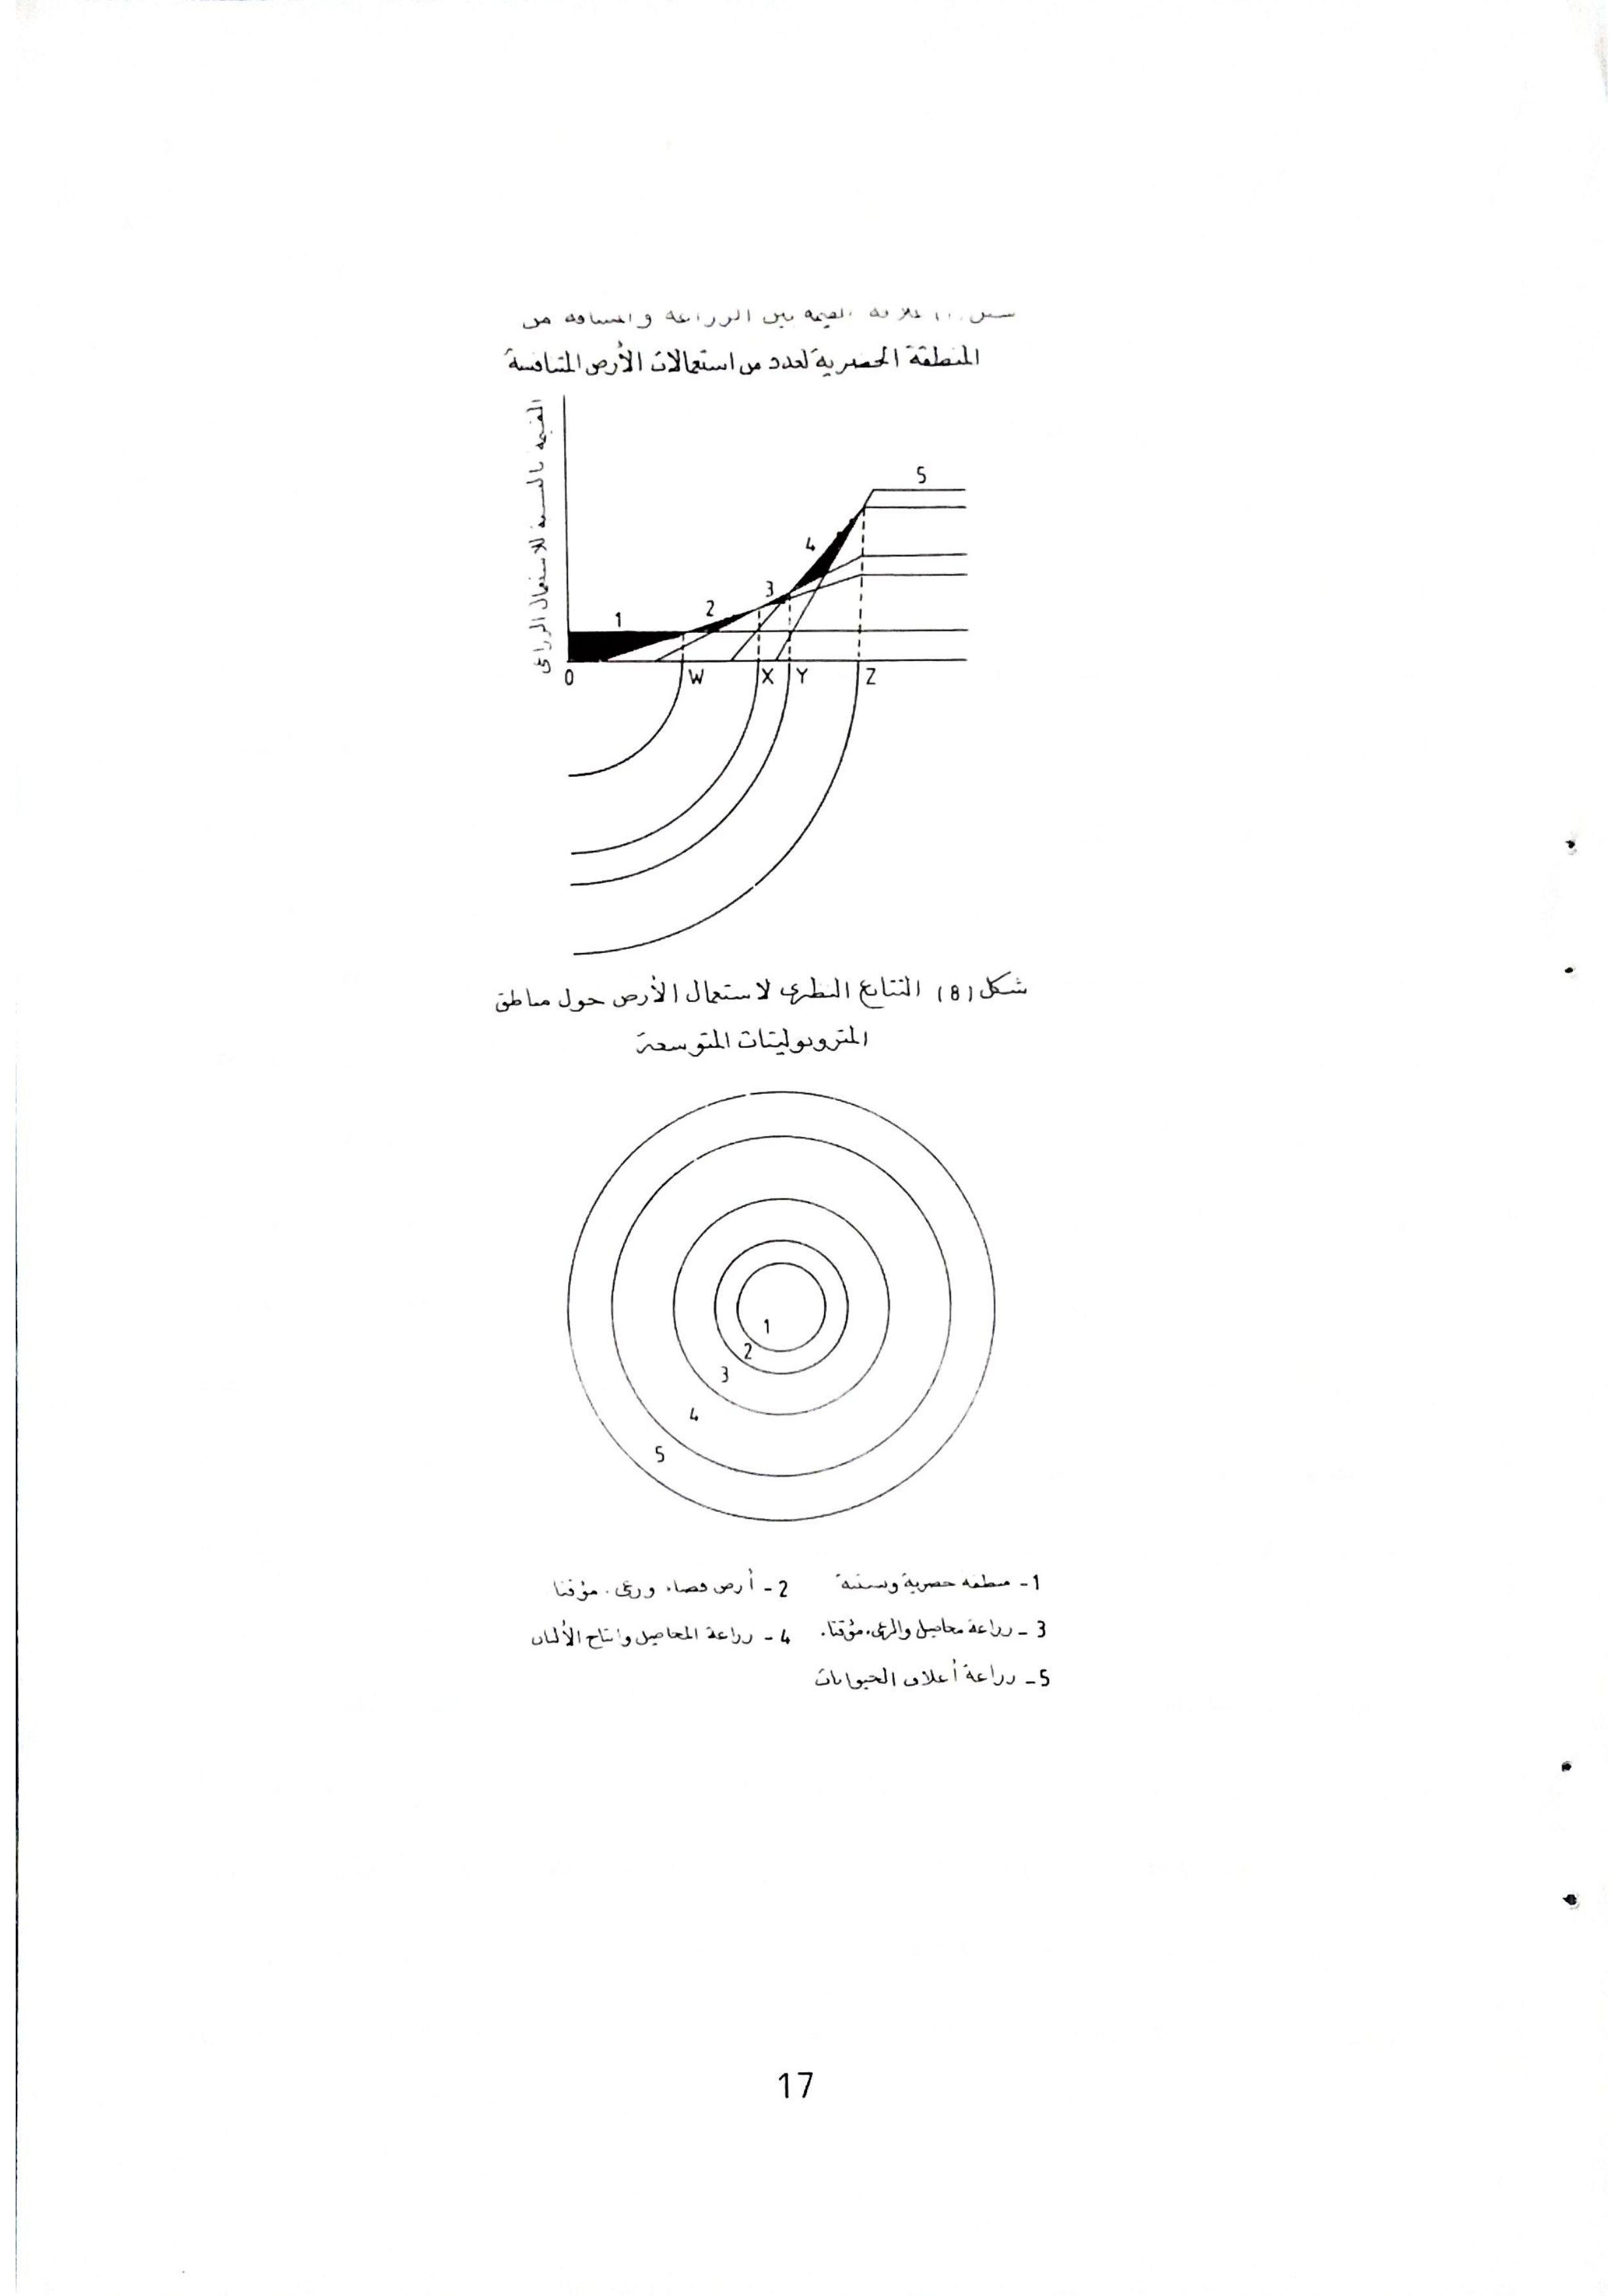 علاقة القيمة بين الزراعة والمسافة من
المنطقة الحضرية لعدد من استعمالات الأرض المتنافسة
القيمة بالنسبة للاستعمال الزراعي
5
4
3
2
1
0 W X Y Z
شكل (8) التتابع النظري لاستعمال الأرض حول مناطق
المتروبوليتات المتوسعة
1
2
3
4
5
1- منطقة حضرية وسكنية 2- أرض فضاء ورعي. مؤقتا
3- زراعة محاصيل والرعي. مؤقتا. 4- زراعة المحاصيل وانتاج الألبان
5- زراعة أعلاف الحيوانات
17